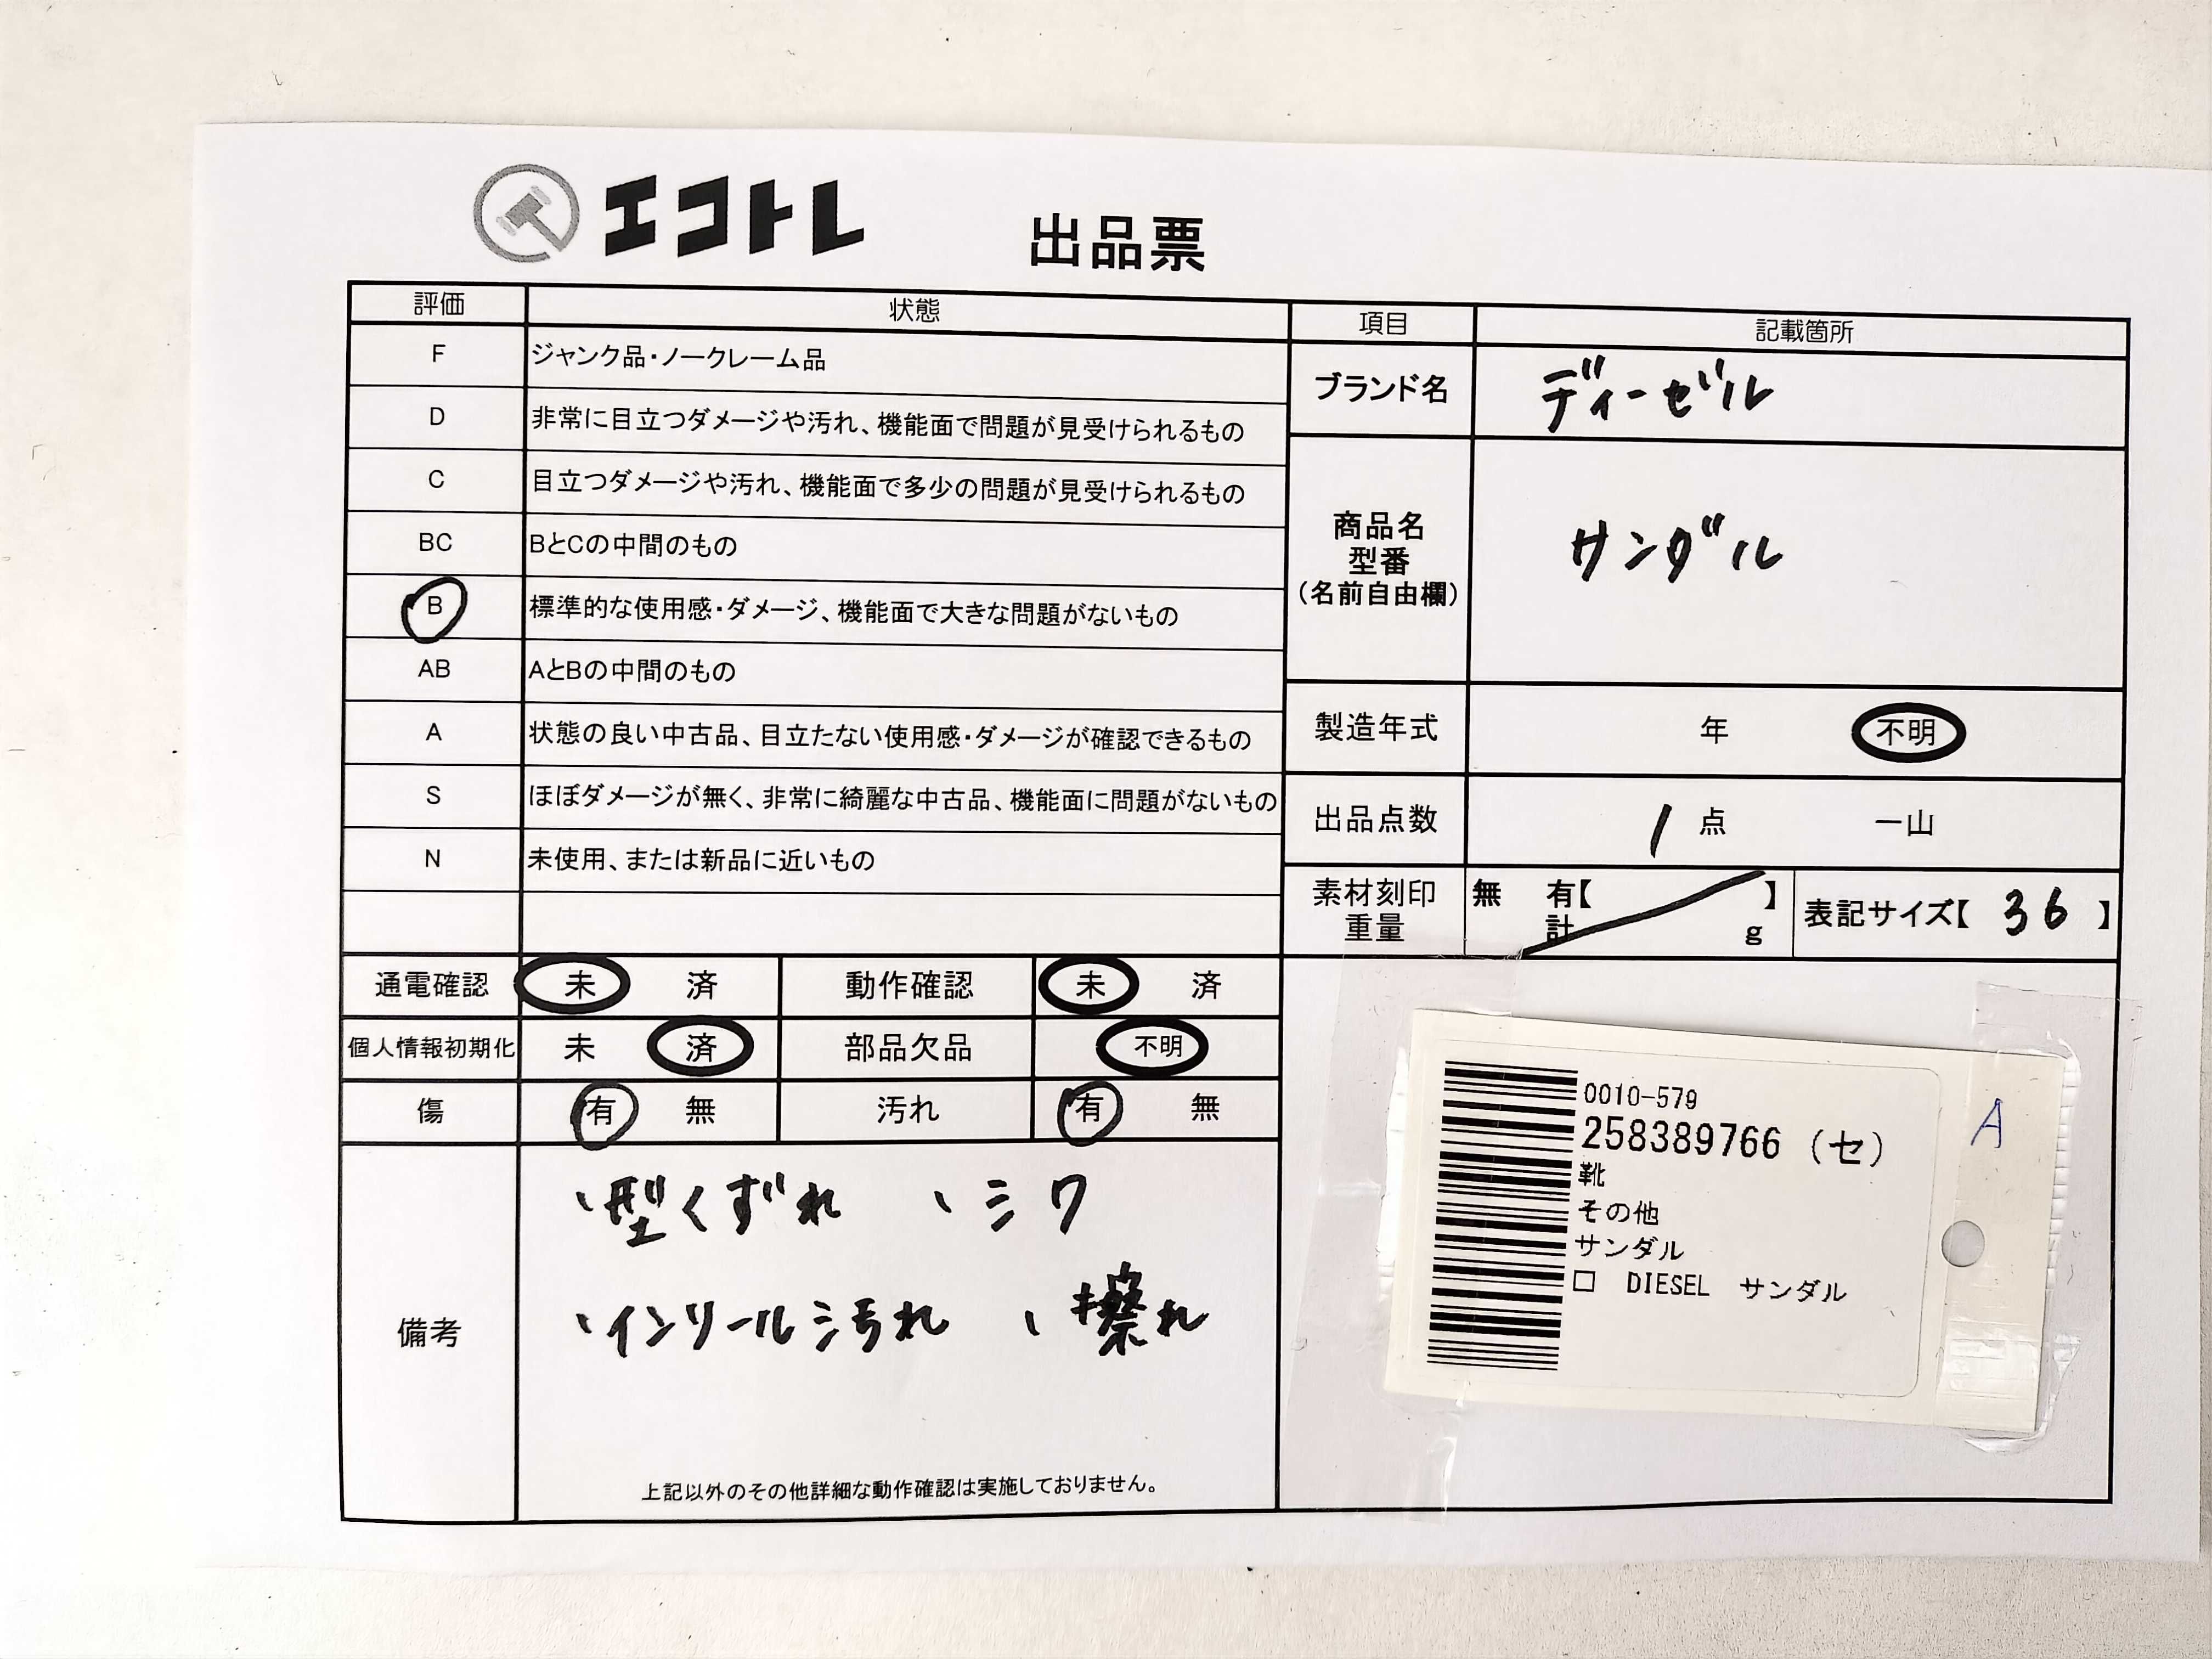 エコトレ 出品票
評価 状態
F ジャンク品・ノークレーム品
D 非常に目立つダメージや汚れ、機能面で問題が見受けられるもの
C 目立つダメージや汚れ、機能面で多少の問題が見受けられるもの
BC BとCの中間のもの
B 標準的な使用感・ダメージ、機能面で大きな問題がないもの
AB AとBの中間のもの
A 状態の良い中古品、目立たない使用感・ダメージが確認できるもの
S ほぼダメージが無く、非常に綺麗な中古品、機能面に問題がないもの
N 未使用、または新品に近いもの
項目 記載箇所
ブランド名 ディーゼル
商品名
型番
(名前自由欄)
サンダル
製造年式 年 不明
出品点数 1 点 一山
素材刻印 無 有【 】
重量 計 g
表記サイズ【 36 】
通電確認 未 済 動作確認 未 済
個人情報初期化 未 済 部品欠品 不明
傷 有 無 汚れ 有 無
備考
、型くずれ 、シワ
、インソール汚れ 、擦れ
上記以外のその他詳細な動作確認は実施しておりません。
0010-579
258389766 (セ)
靴
その他
サンダル
□ DIESEL サンダル
A